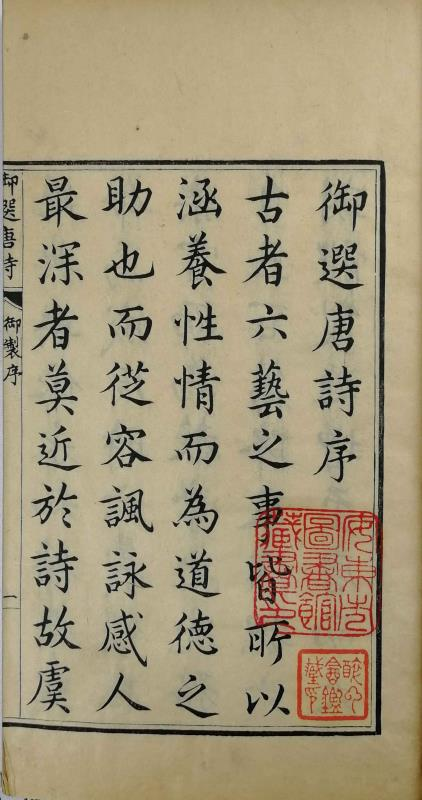 御選唐詩序
古者六藝之事皆所以
涵養性情而為道德之
助也而從容諷詠感人
最深者莫近於詩故虞
御選唐詩
御製序
一